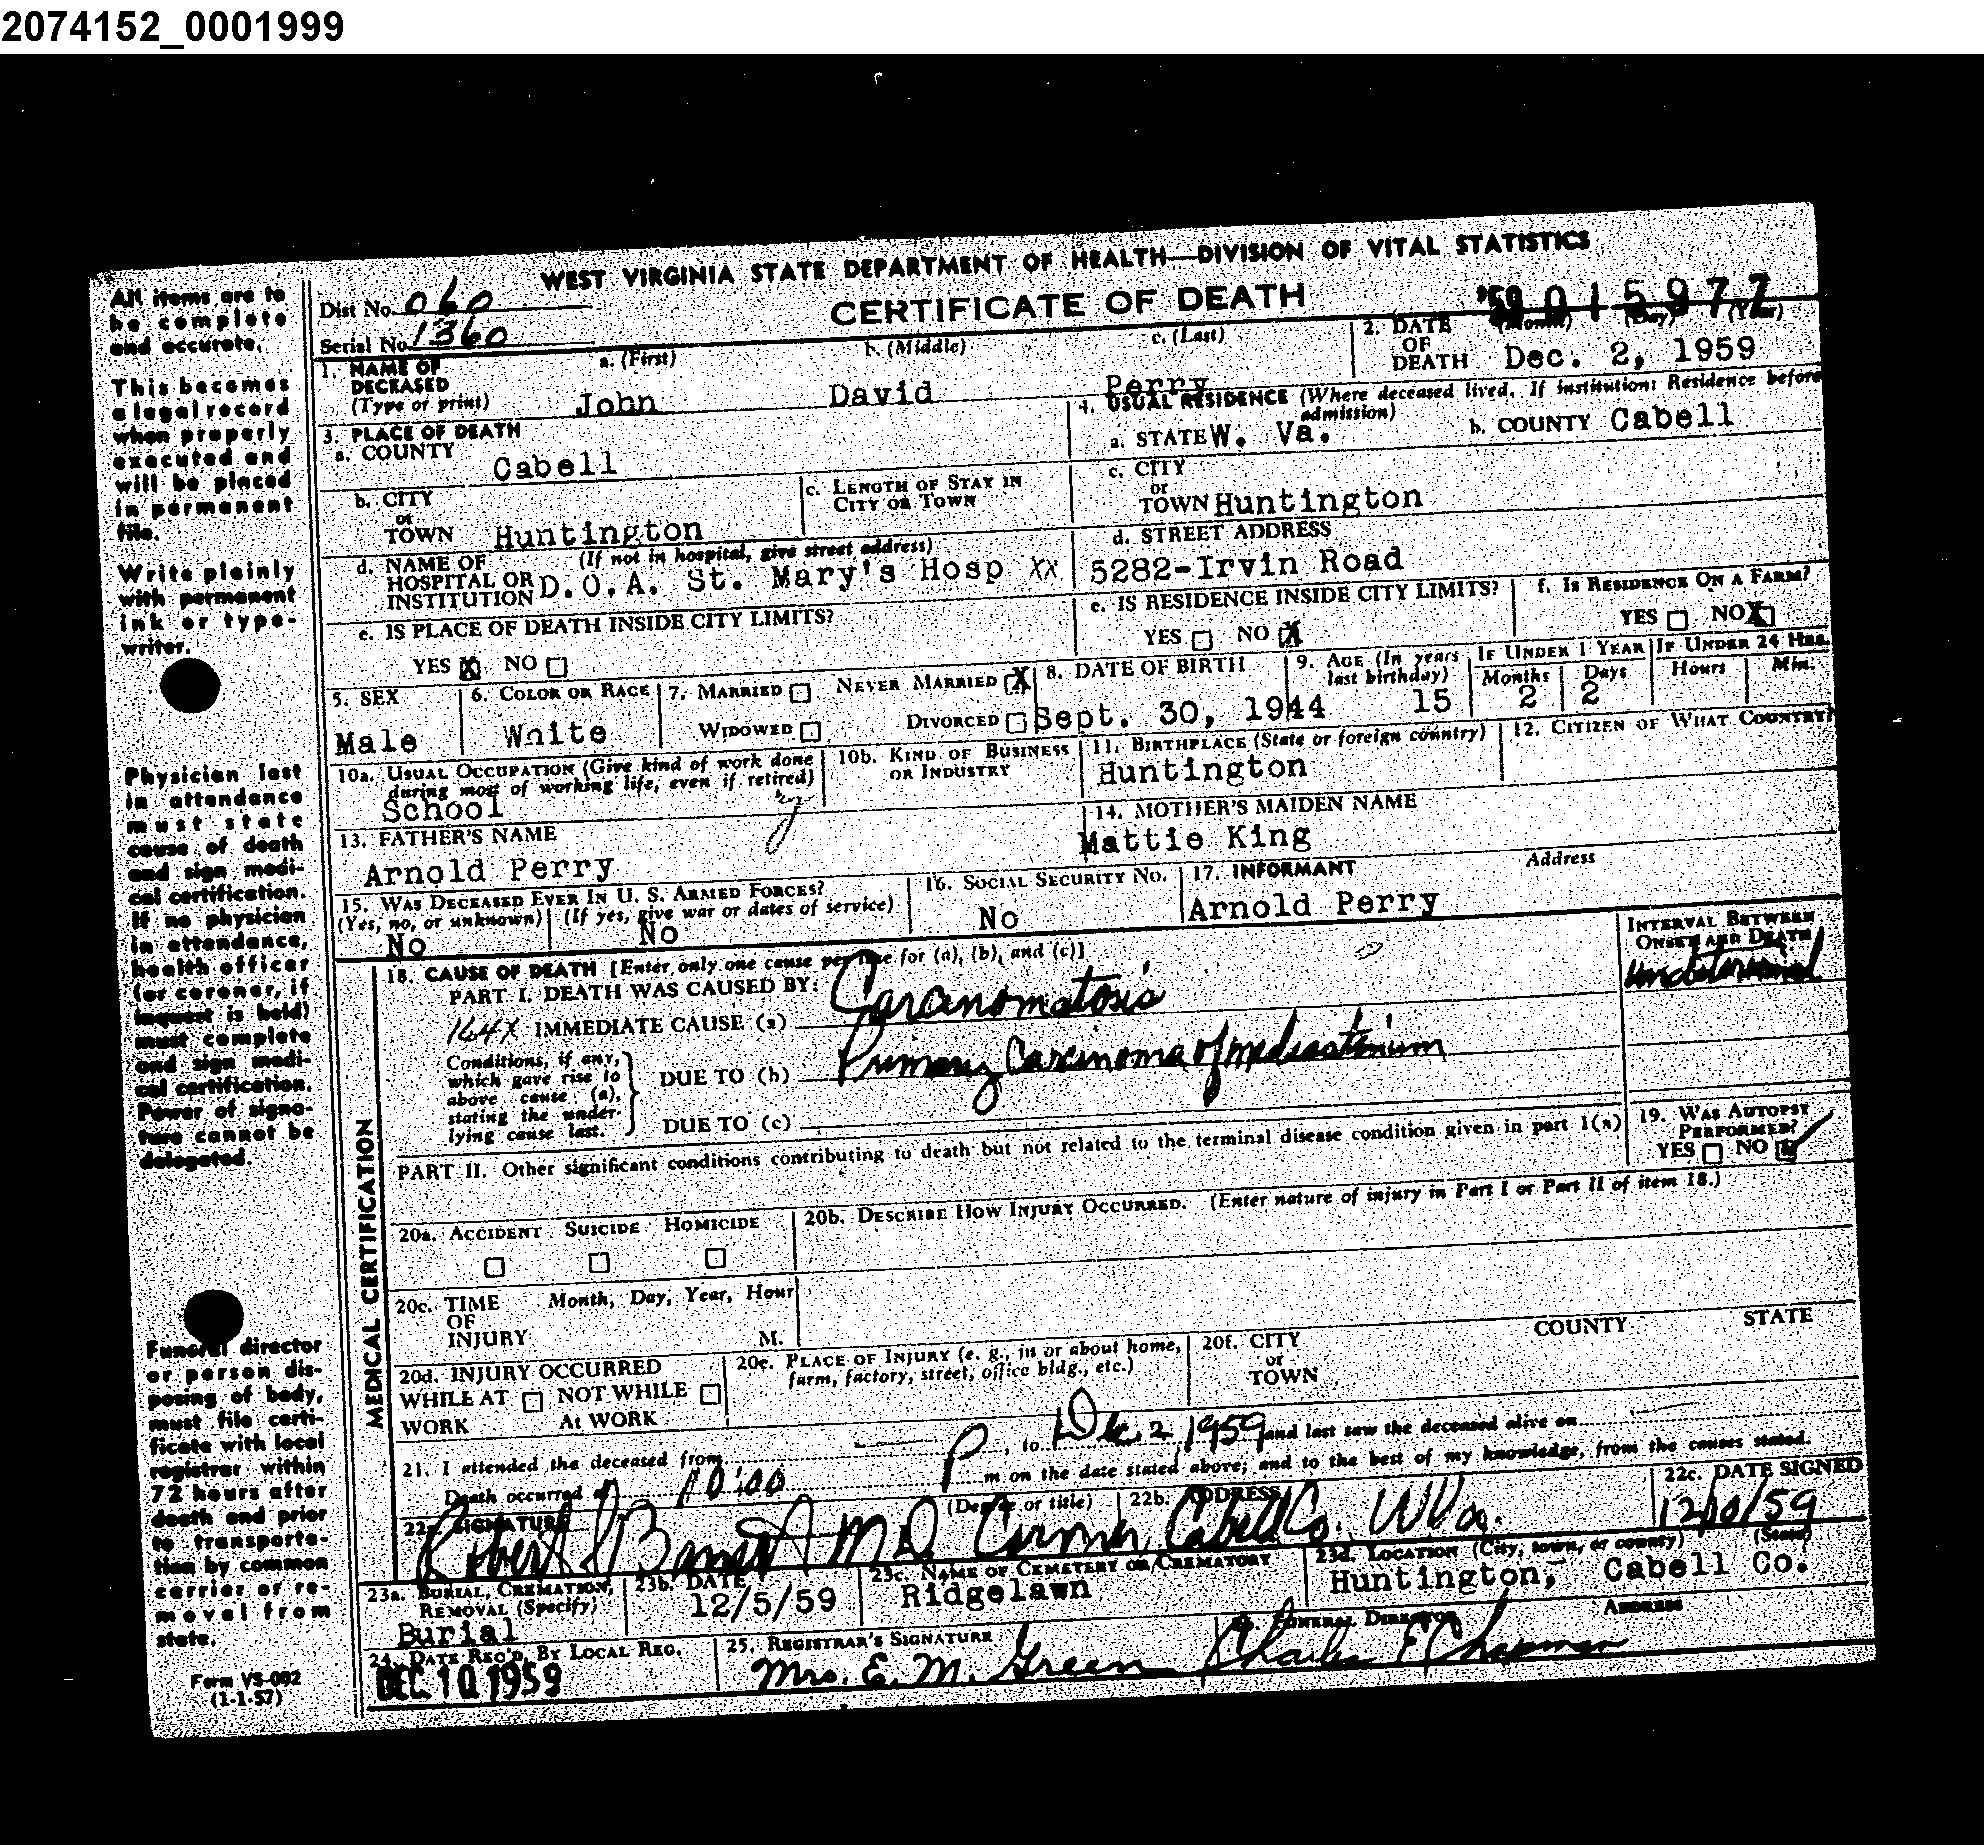 2074152_0001999
WEST VIRGINIA STATE DEPARTMENT OF HEALTH—DIVISION OF VITAL STATISTICS
CERTIFICATE OF DEATH
'59 015977
Dist No. 060
Serial No. 1360
All items are to
be complete
and accurate.
This becomes
a legal record
when properly
executed and
will be placed
in permanent
file.
Write plainly
with permanent
ink or type-
writer.
Physician last
in attendance
must state
cause of death
and sign medi-
cal certification.
If no physician
in attendance,
health officer
(or coroner, if
inquest is held)
must complete
and sign medi-
cal certification.
Power of signa-
ture cannot be
delegated.
Funeral director
or person dis-
posing of body,
must file certi-
ficate with local
registrar within
72 hours after
death and prior
to transporta-
tion by common
carrier or re-
moval from
state.
Form VS-002
(1-1-57)
1. NAME OF DECEASED (Type or print) a. (First) John b. (Middle) David c. (Last) Perry
2. DATE OF DEATH (Month) (Day) (Year) Dec. 2, 1959
3. PLACE OF DEATH
a. COUNTY Cabell
b. CITY or TOWN Huntington
c. LENGTH OF STAY IN CITY OR TOWN
d. NAME OF HOSPITAL OR INSTITUTION (If not in hospital, give street address) D.O.A. St. Mary's Hosp XX
e. IS PLACE OF DEATH INSIDE CITY LIMITS?
YES X NO
4. USUAL RESIDENCE (Where deceased lived. If institution: Residence before admission)
a. STATE W. Va. b. COUNTY Cabell
c. CITY or TOWN Huntington
d. STREET ADDRESS
5282-Irvin Road
e. IS RESIDENCE INSIDE CITY LIMITS?
YES NO X
f. IS RESIDENCE ON A FARM?
YES NO X
5. SEX Male
6. COLOR OR RACE White
7. MARRIED NEVER MARRIED X
WIDOWED DIVORCED
8. DATE OF BIRTH Sept. 30, 1944
9. AGE (In years last birthday) 15
IF UNDER 1 YEAR Months 2 Days 2
IF UNDER 24 HRS. Hours Min.
10a. USUAL OCCUPATION (Give kind of work done during most of working life, even if retired)
School
10b. KIND OF BUSINESS OR INDUSTRY
11. BIRTHPLACE (State or foreign country)
Huntington
12. CITIZEN OF WHAT COUNTRY?
13. FATHER'S NAME
Arnold Perry
14. MOTHER'S MAIDEN NAME
Mattie King
15. WAS DECEASED EVER IN U. S. ARMED FORCES?
(Yes, no, or unknown) (If yes, give war or dates of service)
No No
16. SOCIAL SECURITY NO.
No
17. INFORMANT Address
Arnold Perry
MEDICAL CERTIFICATION
18. CAUSE OF DEATH [Enter only one cause per line for (a), (b), and (c)]
INTERVAL BETWEEN ONSET AND DEATH
PART I. DEATH WAS CAUSED BY:
164X IMMEDIATE CAUSE (a) Carcinomatosis
undetermined
Conditions, if any, which gave rise to above cause (a), stating the under-lying cause last.
DUE TO (b) Primary Carcinoma of mediastinum
DUE TO (c)
PART II. Other significant conditions contributing to death but not related to the terminal disease condition given in part I(a)
19. WAS AUTOPSY PERFORMED?
YES NO
20a. ACCIDENT SUICIDE HOMICIDE
20b. DESCRIBE HOW INJURY OCCURRED. (Enter nature of injury in Part I or Part II of item 18.)
20c. TIME OF INJURY Month, Day, Year, Hour M.
20d. INJURY OCCURRED
WHILE AT WORK NOT WHILE At WORK
20e. PLACE OF INJURY (e. g., in or about home, farm, factory, street, office bldg., etc.)
20f. CITY or TOWN COUNTY STATE
21. I attended the deceased from , to Dec. 2, 1959 and last saw the deceased alive on
Death occurred at 10:00 P m on the date stated above; and to the best of my knowledge, from the causes stated.
22a. SIGNATURE (Degree or title) 22b. ADDRESS 22c. DATE SIGNED
Robert J M.D. Coroner, Cabell Co., W Va. 12/10/59
23a. BURIAL, CREMATION, REMOVAL (Specify) Burial
23b. DATE 12/5/59
23c. NAME OF CEMETERY OR CREMATORY Ridgelawn
23d. LOCATION (City, town, or county) (State)
Huntington, Cabell Co.
24. DATE REC'D. BY LOCAL REG.
DEC 10 1959
25. REGISTRAR'S SIGNATURE
Mrs. E. M. Green
FUNERAL DIRECTOR ADDRESS
Charles E Chapman